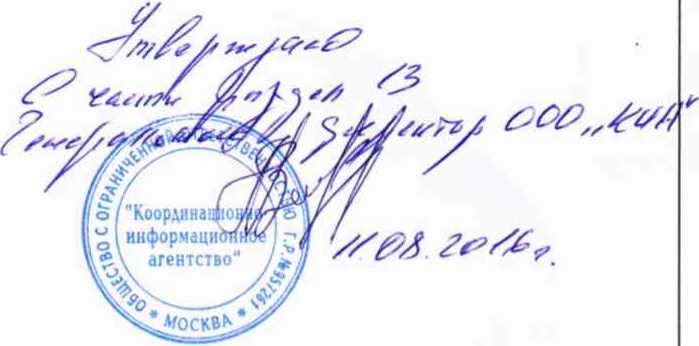 Утверждаю
В части раздел 13
Генеральный директор ООО „КИА"
11.08.2016г.
ОБЩЕСТВО С ОГРАНИЧЕННОЙ ОТВЕТСТВЕННОСТЬЮ Г.Р.№951261
"Координационно-
информационное
агентство"
* МОСКВА *